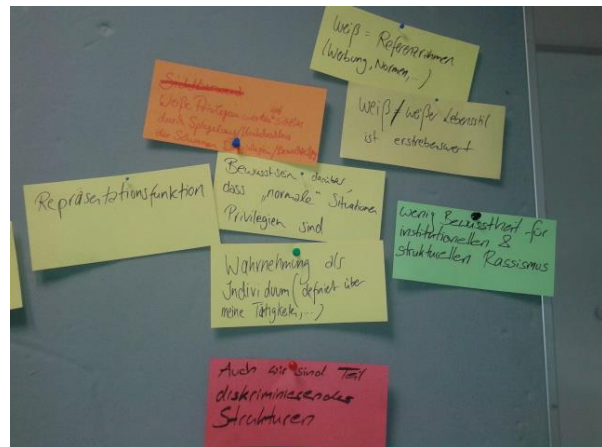 weiß = Referenzrahmen
(Werbung, Normen, ...)
Weiße Privilegien werden erst
durch Spiegelung
weiß / weißer Lebensstil
ist erstrebenswert
Bewusstsein darüber,
dass „normale" Situationen
Privilegien sind
Repräsentationsfunktion
wenig Bewusstheit für
institutionellen &
strukturellen Rassismus
Wahrnehmung als
Individuum (definiert über
meine Tätigkeiten, ...)
Auch wir sind Teil
diskriminierender
Strukturen